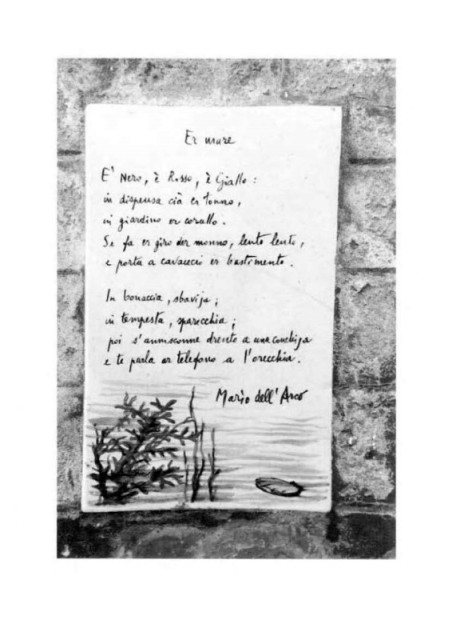 Er mare
E' Nero, è Rosso, è Giallo:
in dispensa cià er tonno,
in giardino er corallo.
Se fa er giro der monno, lento lento,
e porta a cavacecio er bastimento.
In bonaccia, sbavija;
in tempesta, sparecchia;
poi s'annisconne drento a una conchija
e te parla ar telefono a l'orecchia.
Mario dell'Arco